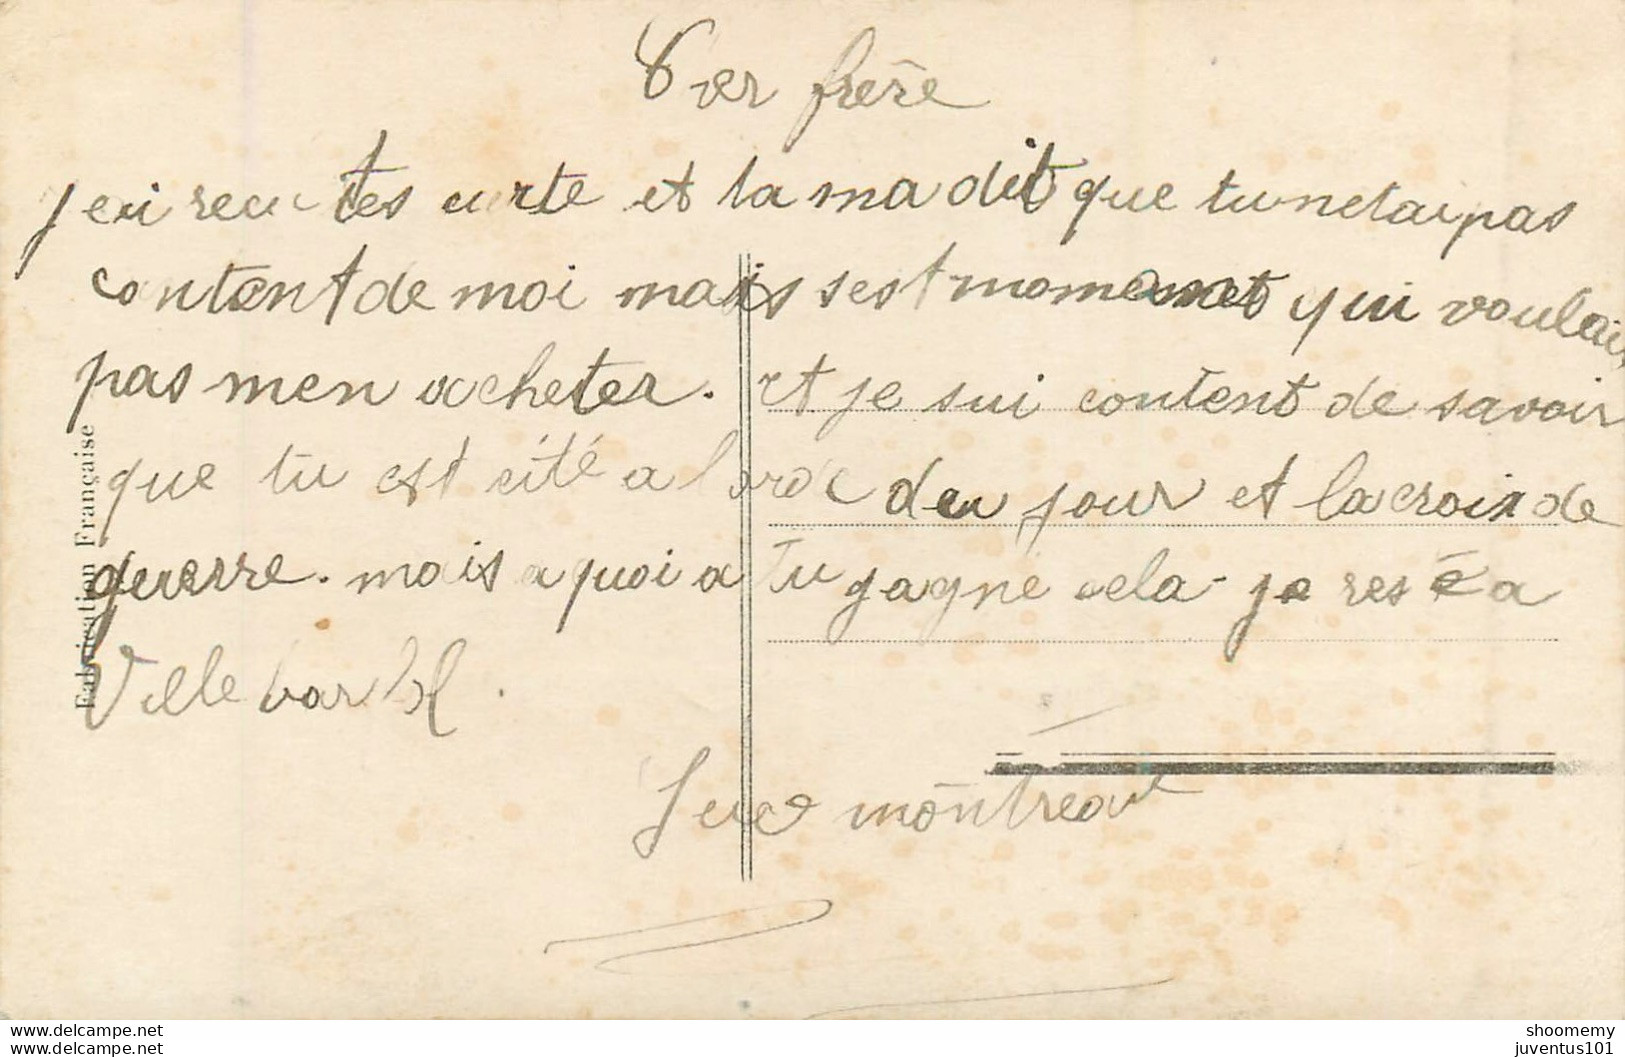 Cher frère
J ai recu tes carte et ta ma dit que tu netai pas
content de moi mais sest moment qui voulais
pas men acheter. et je sui content de savoir
que tu est cité a lorde deu jour et la croix de
guerre. mais a quoi a tu gagne cela je res é a
Ville
montreau
Fabrication Française
www.delcampe.net
www.delcampe.net
shoomemy
juventus101